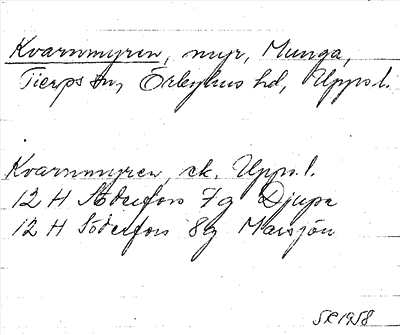 Kvarnmyren, myr, Munga,
Tierps sn, Örbyhus hd, Upps.l.
Kvarnmyren, ek. Upps.l.
12 H Söderfors 7g Djupa
12 H Söderfors 8g Marsjön
SR 1958